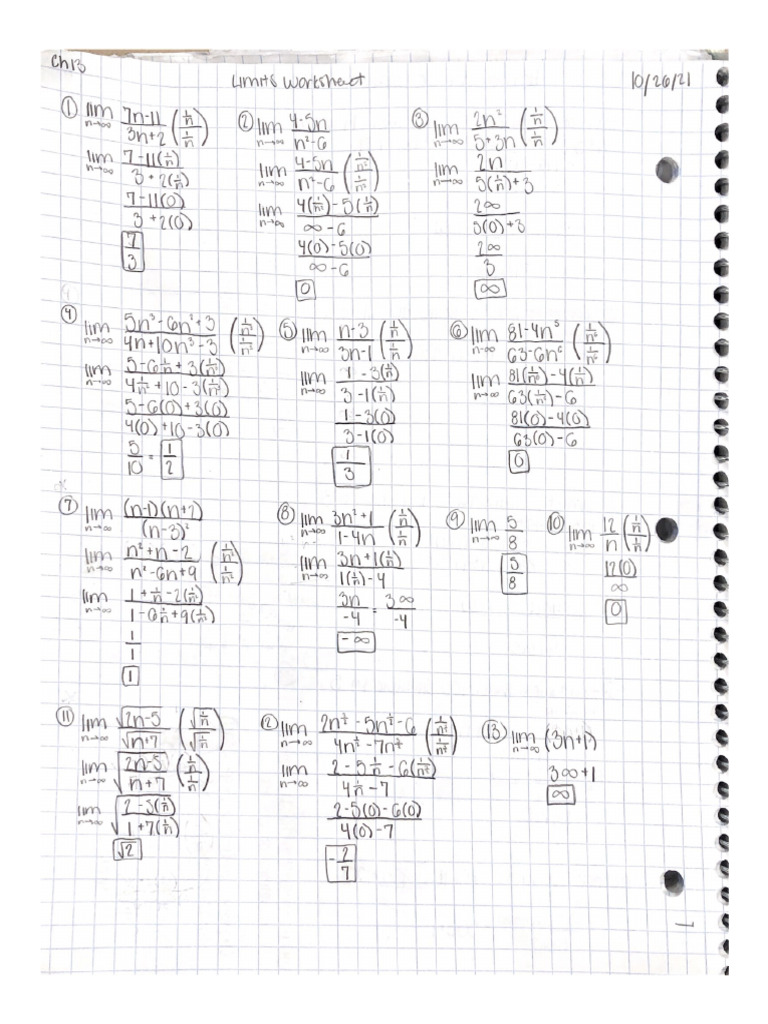 Ch13
Limits Worksheet 10/26/21
① lim n→∞ (7n-11)/(3n+2) ((1/n)/(1/n))
lim n→∞ (7-11(1/n))/(3+2(1/n))
(7-11(0))/(3+2(0))
7/3
② lim n→∞ (4-5n)/(n²-6)
lim n→∞ (4-5n)/(n²-6) ((1/n²)/(1/n²))
lim n→∞ (4(1/n²)-5(1/n))/(∞-6)
(4(0)-5(0))/(∞-6)
0
③ lim n→∞ 2n²/(5+3n) ((1/n)/(1/n))
lim n→∞ 2n/(5(1/n)+3)
2∞/(5(0)+3)
2∞/3
∞
④ lim n→∞ (5n³-6n²+3)/(4n+10n³-3) ((1/n³)/(1/n³))
lim n→∞ (5-6 1/n+3(1/n³))/(4 1/n²+10-3(1/n³))
(5-6(0)+3(0))/(4(0)+10-3(0))
5/10 = 1/2
⑤ lim n→∞ (n-3)/(3n-1) ((1/n)/(1/n))
lim n→∞ (1-3(1/n))/(3-1(1/n))
(1-3(0))/(3-1(0))
1/3
⑥ lim n→∞ (81-4n⁵)/(63-6n⁶) ((1/n⁶)/(1/n⁶))
lim n→∞ (81(1/n⁶)-4(1/n))/(63(1/n⁶)-6)
(81(0)-4(0))/(63(0)-6)
0
⑦ lim n→∞ (n-1)(n+2)/(n-3)²
lim n→∞ (n²+n-2)/(n²-6n+9) ((1/n²)/(1/n²))
lim n→∞ (1+1/n-2(1/n²))/(1-6 1/n+9(1/n²))
1/1
1
⑧ lim n→∞ (3n²+1)/(1-4n) ((1/n)/(1/n))
lim n→∞ (3n+1(1/n))/(1(1/n)-4)
3n/-4 = 3∞/-4
-∞
⑨ lim n→∞ 5/8
5/8
⑩ lim n→∞ 12/n ((1/n)/(1/n))
12(0)/∞
0
⑪ lim n→∞ √(2n-5)/√(n+7) (√(1/n)/√(1/n))
lim n→∞ √((2n-5)/(n+7) ((1/n)/(1/n)))
lim n→∞ √((2-5(1/n))/(1+7(1/n)))
√2
⑫ lim n→∞
lim n→∞
(2-5(0)-6(0))/(4(0)-7)
-2/7
⑬ lim n→∞ (3n+1)
3∞+1
∞
1